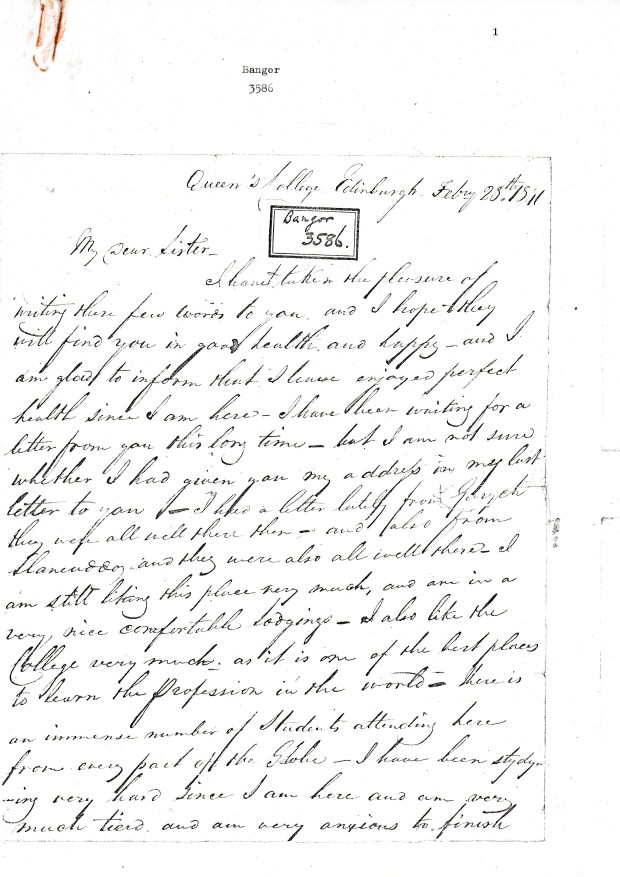 1
Bangor
3586
Queen's College Edinburgh Febry 28th
Bangor
3586.
My Dear Sister
I have taken the pleasure of
writing these few words to you. and I hope they
will find you in good health and happy - and I
am glad to inform that I have enjoyed perfect
health since I am here - I have been waiting for a
letter from you this long time - but I am not sure
whether I had given you my address in my last
letter to you - I had a letter lately from
they were all well there then - and also from
and they were also all well there - I
am still liking this place very much, and am in a
very, nice comfortable lodgings - I also like the
College very much. as it is one of the best places
to learn the Profession in the world - there is
an immense number of Students attending here
from every part of the Globe - I have been study-
-ing very hard since I am here and am very
much tierd. and am very anxious to finish